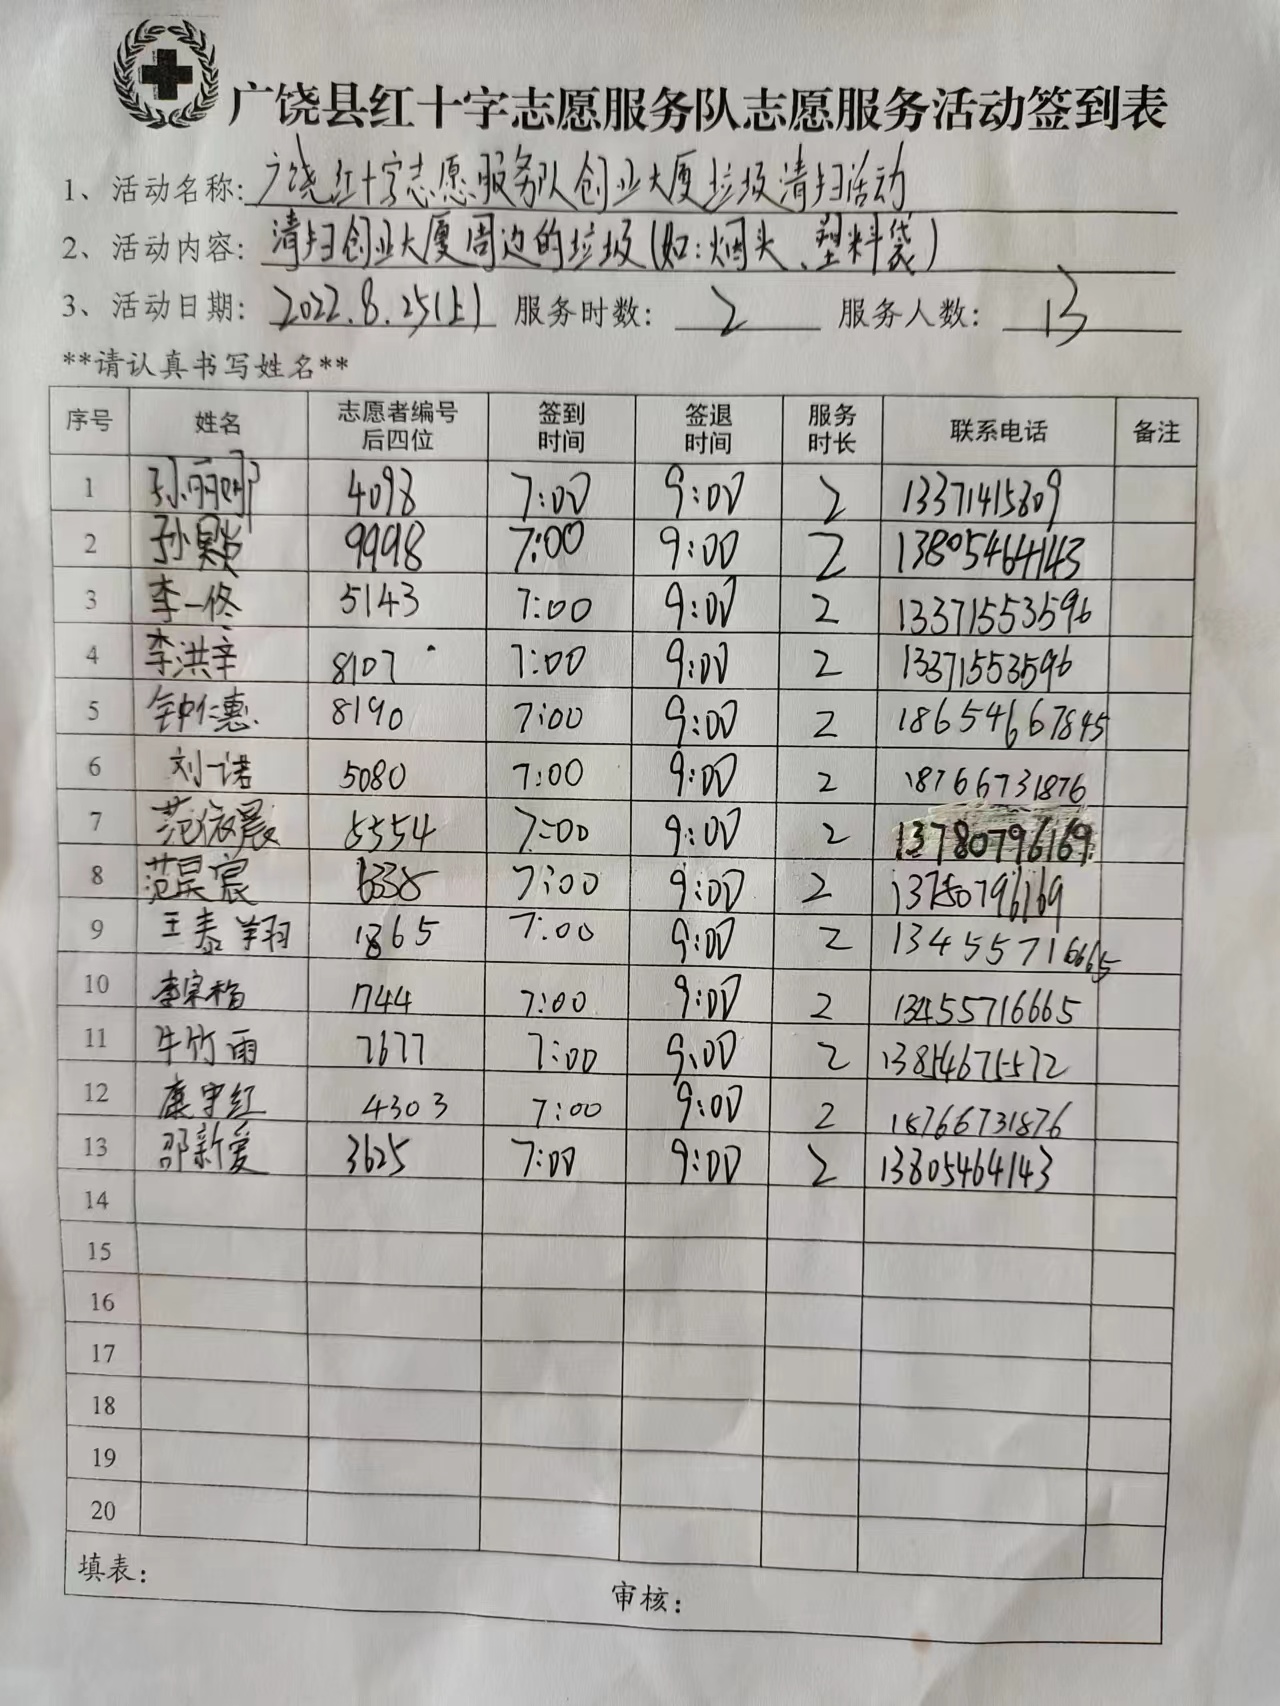 广饶县红十字志愿服务队志愿服务活动签到表
1、活动名称:广饶红十字志愿服务队创业大厦垃圾清扫活动
2、活动内容:清扫创业大厦周边的垃圾(如:烟头、塑料袋)
3、活动日期:2022.8.25(上) 服务时数:2 服务人数:13
**请认真书写姓名**
序号 姓名 志愿者编号后四位 签到时间 签退时间 服务时长 联系电话 备注
1 孙丽娜 4098 7:00 9:00 2 13371415809
2 孙昊 9998 7:00 9:00 2 13805464143
3 李一佟 5143 7:00 9:00 2 13371553596
4 李洪辛 8107 7:00 9:00 2 13371553596
5 钟仁惠 8190 7:00 9:00 2 18654667845
6 刘一诺 5080 7:00 9:00 2 18766731876
7 范依晨 5554 7:00 9:00 2 13780796169
8 范昊宸 6338 7:00 9:00 2 13780796169
9 王泰翔 1865 7:00 9:00 2 13455716665
10 李宗梅 1744 7:00 9:00 2 13455716665
11 牛竹雨 7677 7:00 9:00 2 13854675572
12 康守红 4303 7:00 9:00 2 18766731876
13 邵新爱 3625 7:00 9:00 2 13805464143
14
15
16
17
18
19
20
填表: 审核: